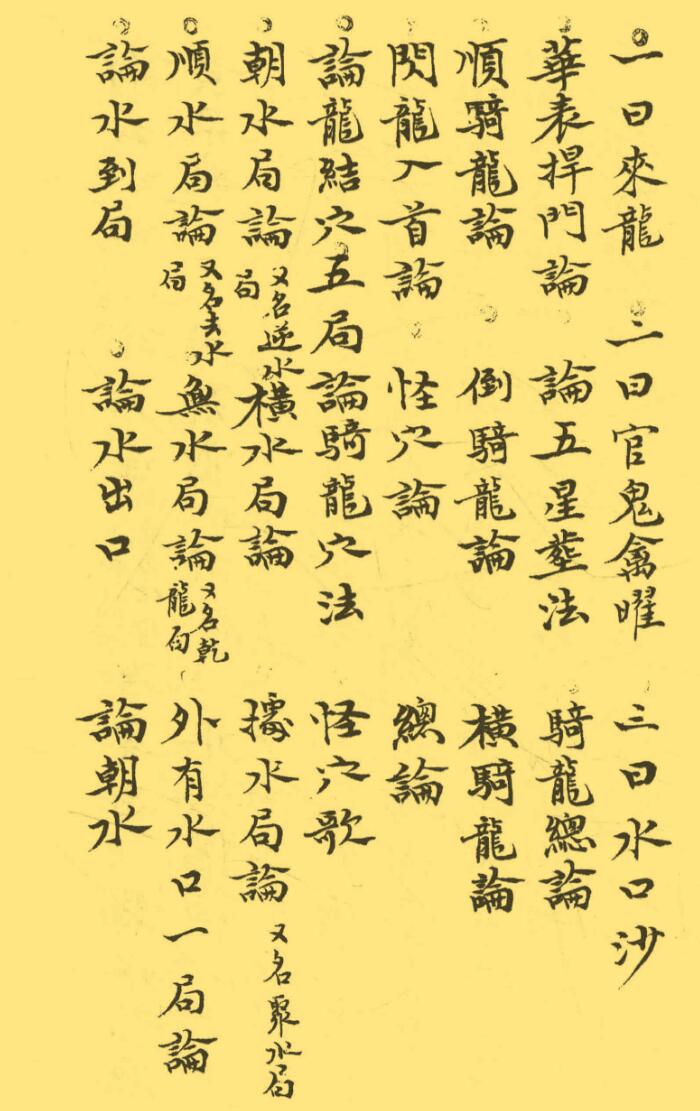 一曰來龍　二曰官鬼禽曜　三曰水口沙
華表捍門論　論五星塟法　騎龍總論
順騎龍論　倒騎龍論　橫騎龍論
閃龍入首論　怪穴論　總論
論龍結穴五局論騎龍穴法　怪穴歌
朝水局論又名逆水局　橫水局論　據水局論又名聚水局
順水局論又名去水局　無水局論又名乾龍局　外有水口一局論
論水到局　論水出口　論朝水